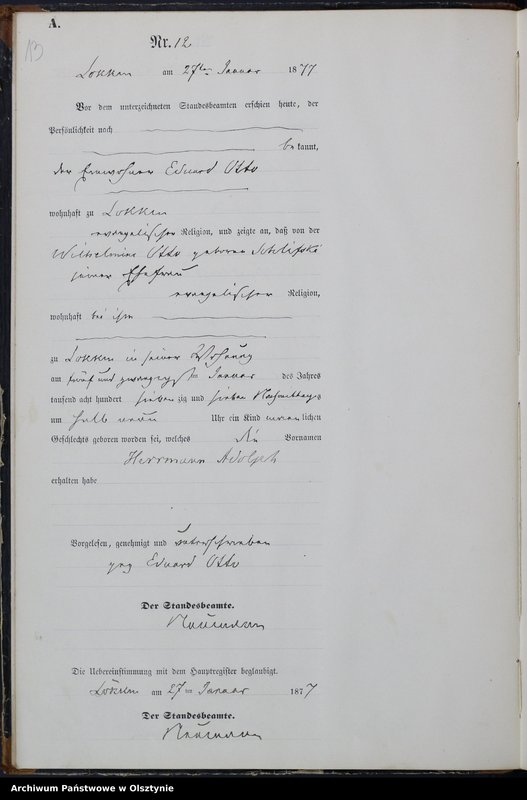 A.
13
Nr. 12
Lokken am 27ten Januar 1877
Vor dem unterzeichneten Standesbeamten erschien heute, der
Persönlichkeit nach
be kannt,
der Einwohner Eduard Otto
wohnhaft zu Lokken
evangelischer Religion, und zeigte an, daß von der
Wilhelmine Otto geborene
seiner Ehefrau
evangelischer Religion,
wohnhaft bei ihm
zu Lokken in seiner Wohnung
am fünf und zwanzigsten Januar des Jahres
tausend acht hundert sieben zig und sieben Nachmittags
um halb neun Uhr ein Kind männlichen
Geschlechts geboren worden sei, welches die Vornamen
Herrmann Adolph
erhalten habe
Vorgelesen, genehmigt und unterschrieben
gez Eduard Otto
Der Standesbeamte.
Neumann
Die Uebereinstimmung mit dem Hauptregister beglaubigt.
Lokken am 27ten Januar 1877
Der Standesbeamte.
Neumann
Archiwum Państwowe w Olsztynie